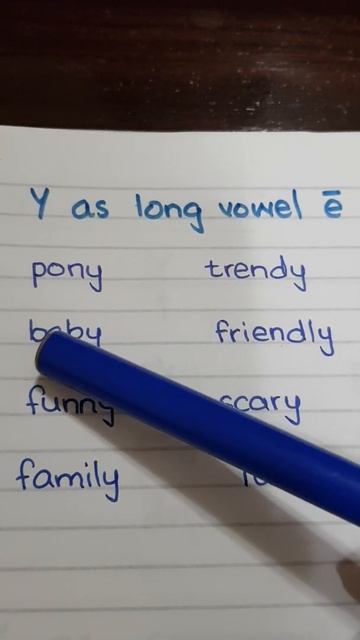 Y as long vowel ē
pony trendy
baby friendly
funny scary
family